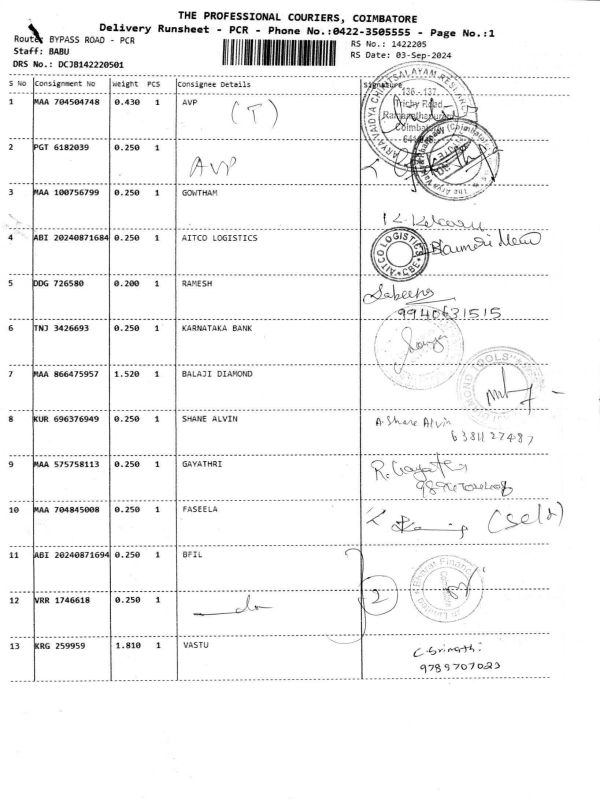 THE PROFESSIONAL COURIERS, COIMBATORE
Delivery Runsheet - PCR - Phone No.:0422-3505555 - Page No.:1
Route: BYPASS ROAD - PCR
Staff: BABU
DRS No.: DCJB142220501
RS No.: 1422205
RS Date: 03-Sep-2024
S No Consignment No Weight PCS Consignee Details Signature
1 MAA 704504748 0.430 1 AVP
(T)
136 - 137,
Trichy Road
Ramanathapuram
Coimbatore
2 PGT 6182039 0.250 1
AVP
3 MAA 100756799 0.250 1 GOWTHAM
4 ABI 20240871684 0.250 1 AITCO LOGISTICS
AITCO LOGISTICS
CBE
5 DDG 726580 0.200 1 RAMESH
Sabeena
9940631515
6 TNJ 3426693 0.250 1 KARNATAKA BANK
7 MAA 866475957 1.520 1 BALAJI DIAMOND
8 KUR 696376949 0.250 1 SHANE ALVIN
A. Shane Alvin
6381127487
9 MAA 575758113 0.250 1 GAYATHRI
R. Gayathri
10 MAA 704845008 0.250 1 FASEELA
(Self)
11 ABI 20240871694 0.250 1 BFIL
Bharat Financial
12 VRR 1746618 0.250 1
do
2
13 KRG 259959 1.810 1 VASTU
C. Srinathi
9789707023